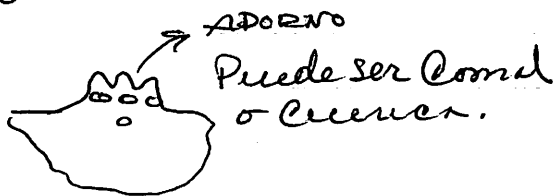 ADORNO
Puede ser Comal
o Cuenca.